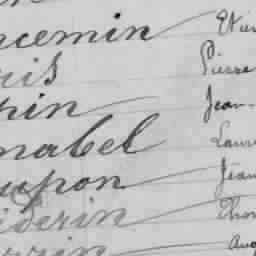 ncemin Etien
ris Pierre
pin Jean-
nabel Laure
upon Jean
iderin Thom
rrin Aug